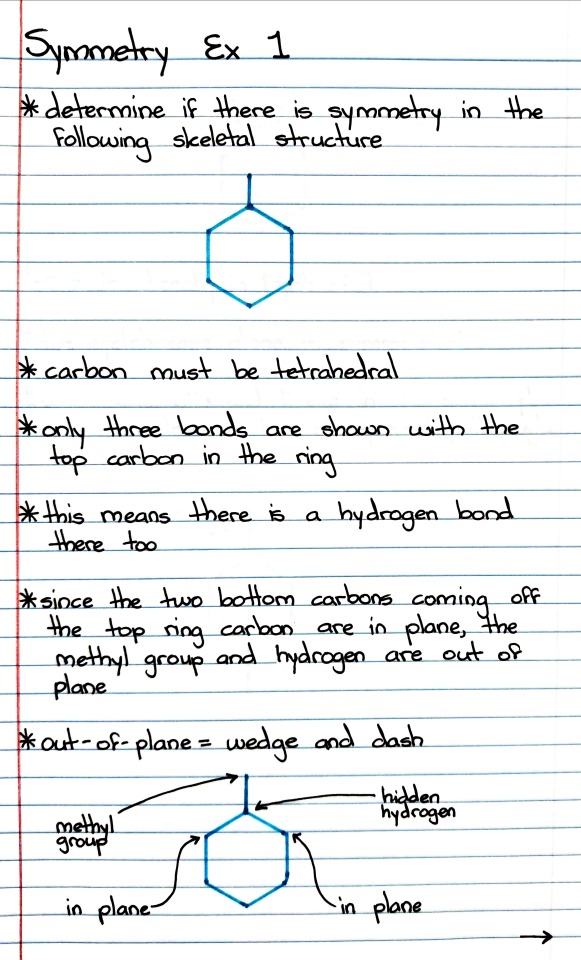 Symmetry Ex 1
* determine if there is symmetry in the
following skeletal structure
* carbon must be tetrahedral
* only three bonds are shown with the
top carbon in the ring
* this means there is a hydrogen bond
there too
* since the two bottom carbons coming off
the top ring carbon are in plane, the
methyl group and hydrogen are out of
plane
* out-of-plane = wedge and dash
methyl
group
hidden
hydrogen
in plane
in plane